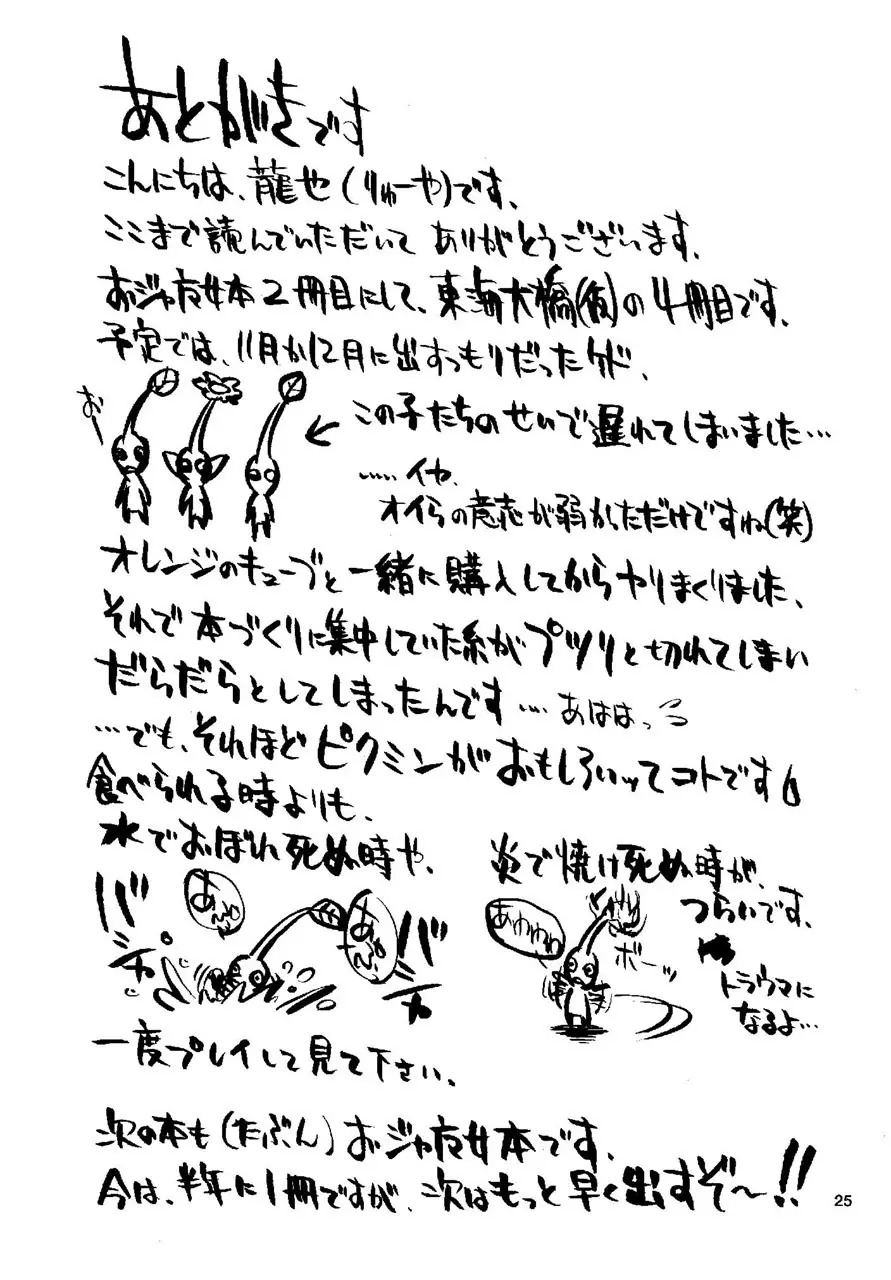 あとがきです
こんにちは、龍也(りゅーや)です、
ここまで読んでいただいて ありがとうございます、
おジャ魔女本2冊目にして、東海大橋(仮)の4冊目です、
予定では、11月か12月に出すつもりだったケド、
おー
← この子たちのせいで遅れてしまいました…
……イヤ、
オイらの意志が弱かっただけですね(笑)
オレンジのキューブと一緒に購入してからやりまくりました、
それで本づくりに集中していた糸がプツリと切れてしまい
だらだらとしてしまったんです…. あははっ
…でも、それほどピクミンがおもしろいッてコトです
食べられる時よりも、
水でおぼれ死ぬ時や、
炎で焼け死ぬ時が、
つらいです、
トラウマに
なるよ…
バチャ
あ〜ぷ
あ〜ぷ
バチャ
あわわわ
ボーッ
一度プレイして見て下さい、
次の本も(たぶん)おジャ魔女本です、
今は、半年に1冊ですが、次はもっと早く出すぞ〜!!
25